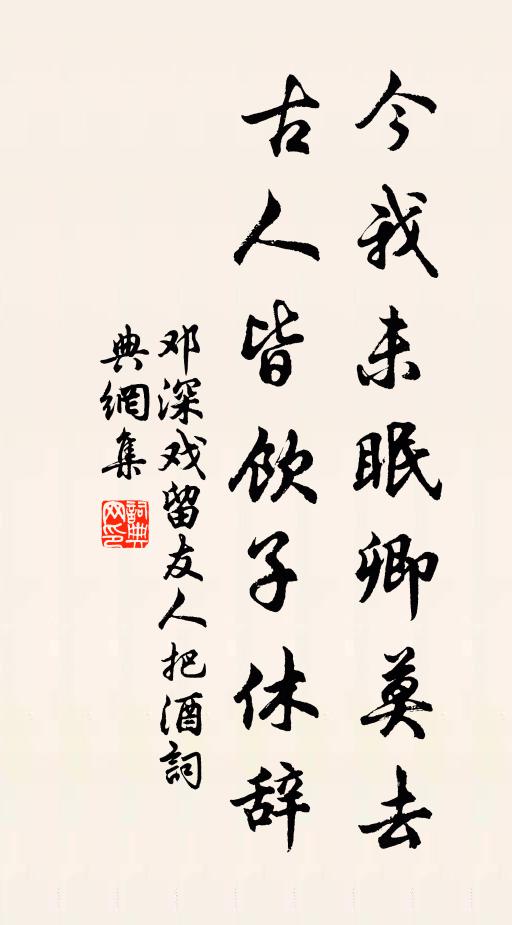 今我未眠卿莫去
古人皆饮子休辞
邓深戏留友人把酒詞
典網集
詞典
网印